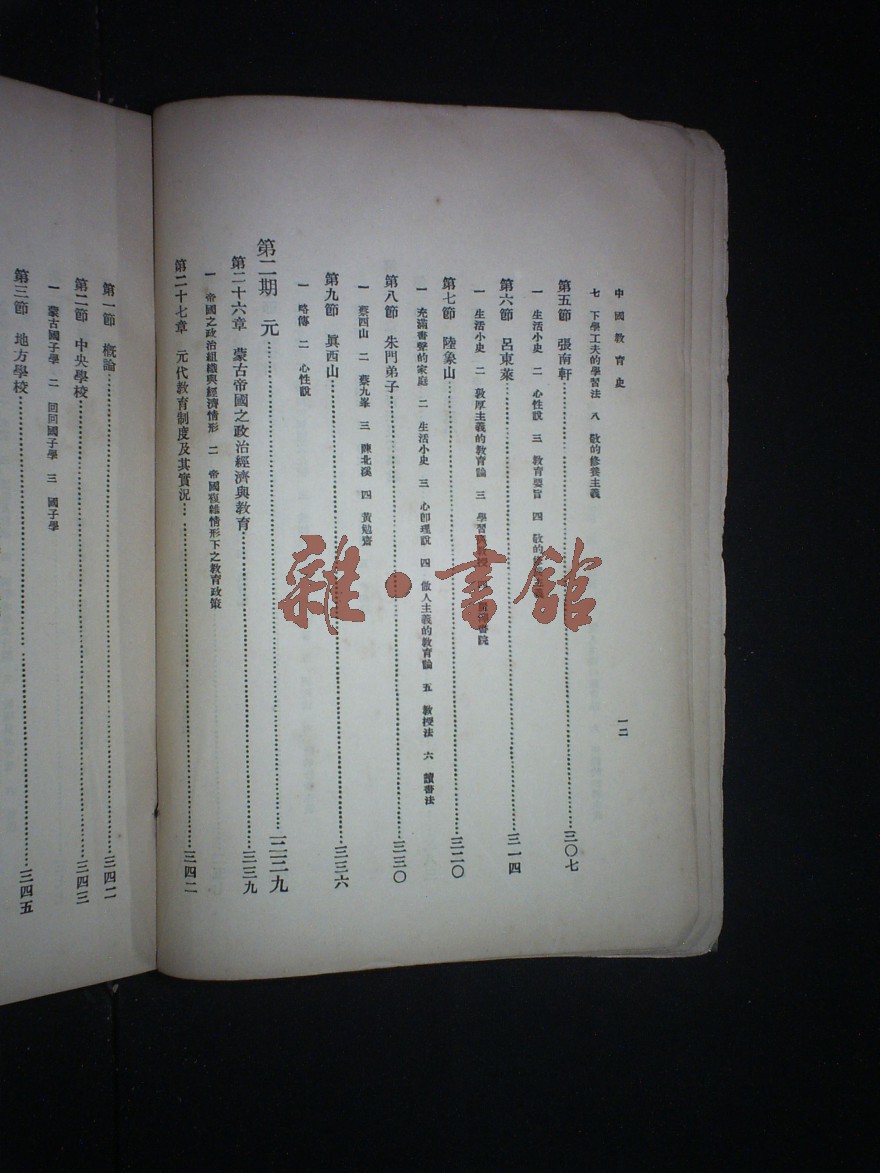 中國教育史
一二
七 下學工夫的學習法 八 敬的修養主義
第五節 張南軒……三〇七
一 生活小史 二 心性說 三 教育要旨 四 敬的修養主義
第六節 呂東萊……三一四
一 生活小史 二 敦厚主義的教育論 三 學習 書院
第七節 陸象山……三二〇
一 充滿書聲的家庭 二 生活小史 三 心卽理說 四 做人主義的教育論 五 教授法 六 讀書法
第八節 朱門弟子……三三〇
一 蔡西山 二 蔡九峯 三 陳北溪 四 黃勉齋
第九節 眞西山……三三六
一 略傳 二 心性說
第二期 元……三三九
第二十六章 蒙古帝國之政治經濟與教育……三三九
一 帝國之政治組織與經濟情形 二 帝國複雜情形下之教育政策
第二十七章 元代教育制度及其實況……三四二
第一節 概論……三四二
第二節 中央學校……三四三
一 蒙古國子學 二 回回國子學 三 國子學
第三節 地方學校……三四五
雜·書館